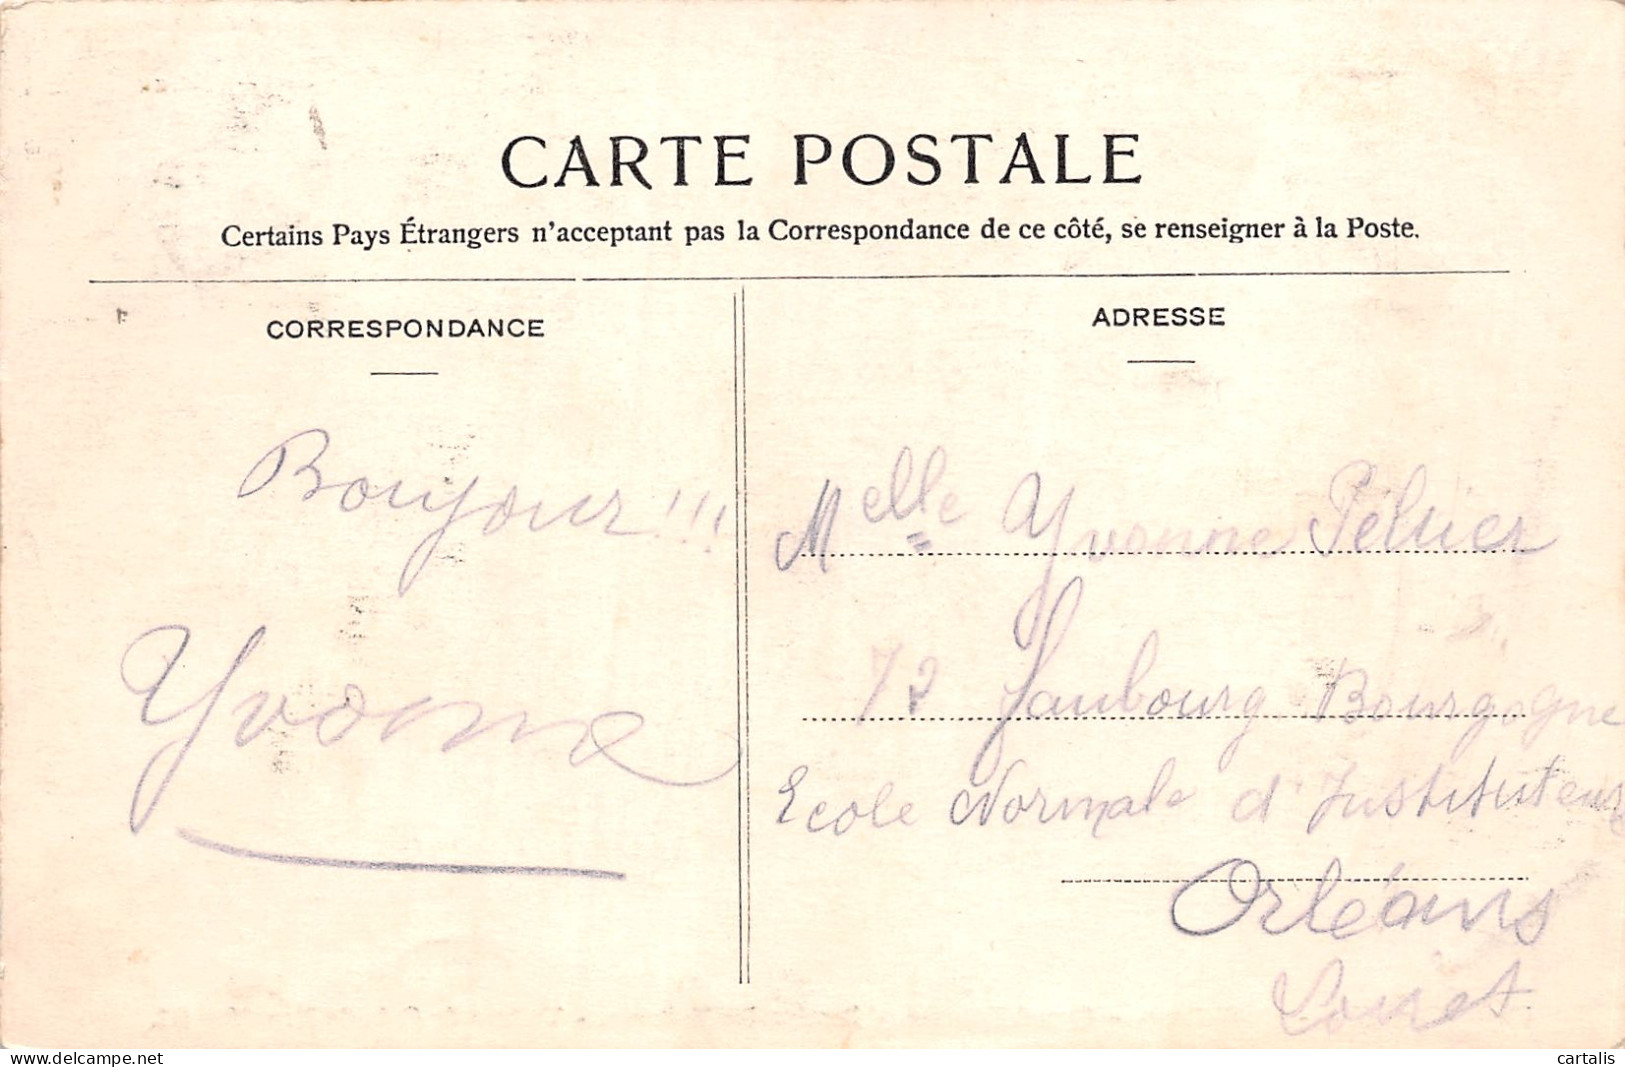 CARTE POSTALE
Certains Pays Étrangers n'acceptant pas la Correspondance de ce côté, se renseigner à la Poste.
CORRESPONDANCE
Bonjour !!!
Yvonne
ADRESSE
Melle Yvonne
72 faubourg Bourgogne
Ecole Normale d'Instituteurs
Orléans
Loiret
www.delcampe.net
cartalis